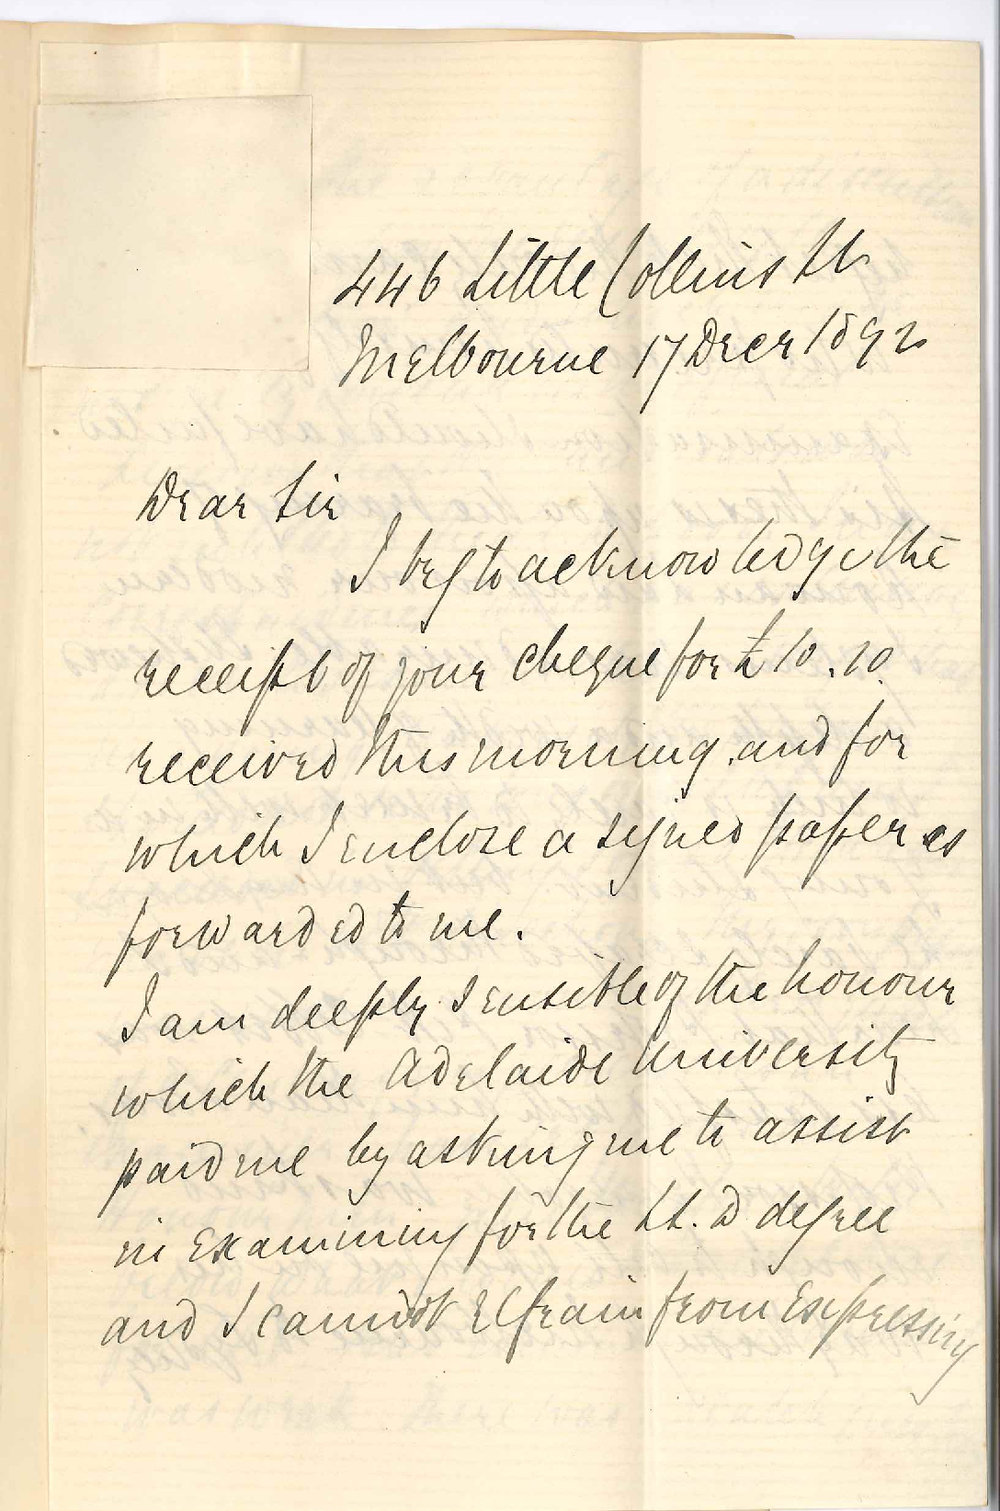 446 Little Collins St
Melbourne 17 Decr 1892
Dear Sir
I beg to acknowledge the
receipt of your cheque for £10.10.
received this morning, and for
which I enclose a signed paper as
forwarded to me.
I am deeply sensible of the honour
which the Adelaide University
paid me by asking me to assist
in examining for the LL.D degree
and I cannot refrain from expressing